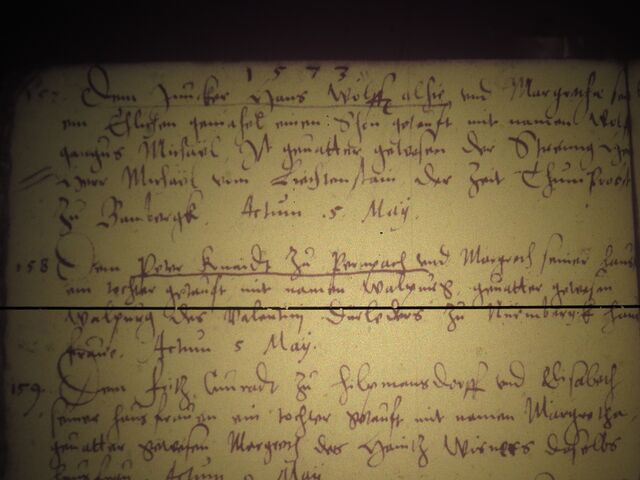 1573
157. Dem Juncker Hans Wolff alhie und Margretha
ein Ehlichen gemahel einen Son getauft mit namen Wolf
gangus Michaël Ist gevatter gewesen der
Herr Michaël vom Liechtenstain der Zeit Thumbrost
zu Bambergk. Actum .5. May.
158 Dem Peter Kneidt zu Permpach und Margreth seiner haus
ein tochter getauft mit namen Walpurg, gevatter gewesen
Walpurg des Valentin zu Nürmberg haus
fraue. Actum 5 May.
159. Dem Fritz Cunradt zu und Elisabeth
seiner hausfrauen ein tochter getauft mit namen Margretha
gevatter gewesen Margreth des Haintz daselbs
hausfrau Actum May